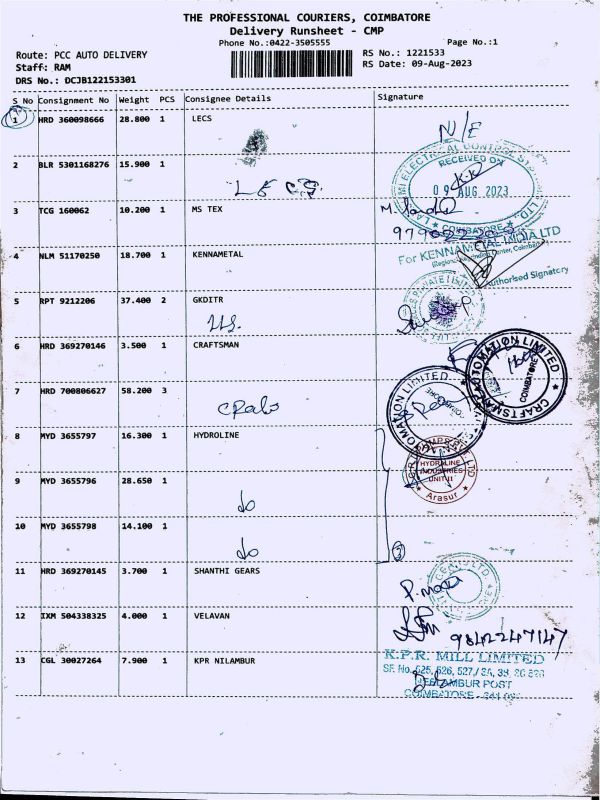 THE PROFESSIONAL COURIERS, COIMBATORE
Delivery Runsheet - CMP
Phone No.:0422-3505555 Page No.:1
Route: PCC AUTO DELIVERY RS No.: 1221533
Staff: RAM RS Date: 09-Aug-2023
DRS No.: DCJB122153301
S No Consignment No Weight PCS Consignee Details Signature
1 HRD 360098666 28.800 1 LECS
N/E
2 BLR 5301168276 15.900 1
RECEIVED ON
09 AUG 2023
COIMBATORE
3 TCG 160062 10.200 1 MS TEX
4 NLM 51170250 18.700 1 KENNAMETAL
For KENNAMETAL INDIA LTD
Authorised Signatory
5 RPT 9212206 37.400 2 GKDITR
6 HRD 369270146 3.500 1 CRAFTSMAN
CRAFTSMAN AUTOMATION LIMITED
COIMBATORE
7 HRD 700806627 58.200 3
AUTOMATION LIMITED
8 MYD 3655797 16.300 1 HYDROLINE
HYDROLINE
INDUSTRIES
UNIT II
Arasur
9 MYD 3655796 28.650 1
do
10 MYD 3655798 14.100 1
do
11 HRD 369270145 3.700 1 SHANTHI GEARS
12 IXM 504338325 4.000 1 VELAVAN
9842247147
13 CGL 30027264 7.900 1 KPR NILAMBUR
K.P.R. MILL LIMITED
SF. No. 625, 626, 527
POST
COIMBATORE